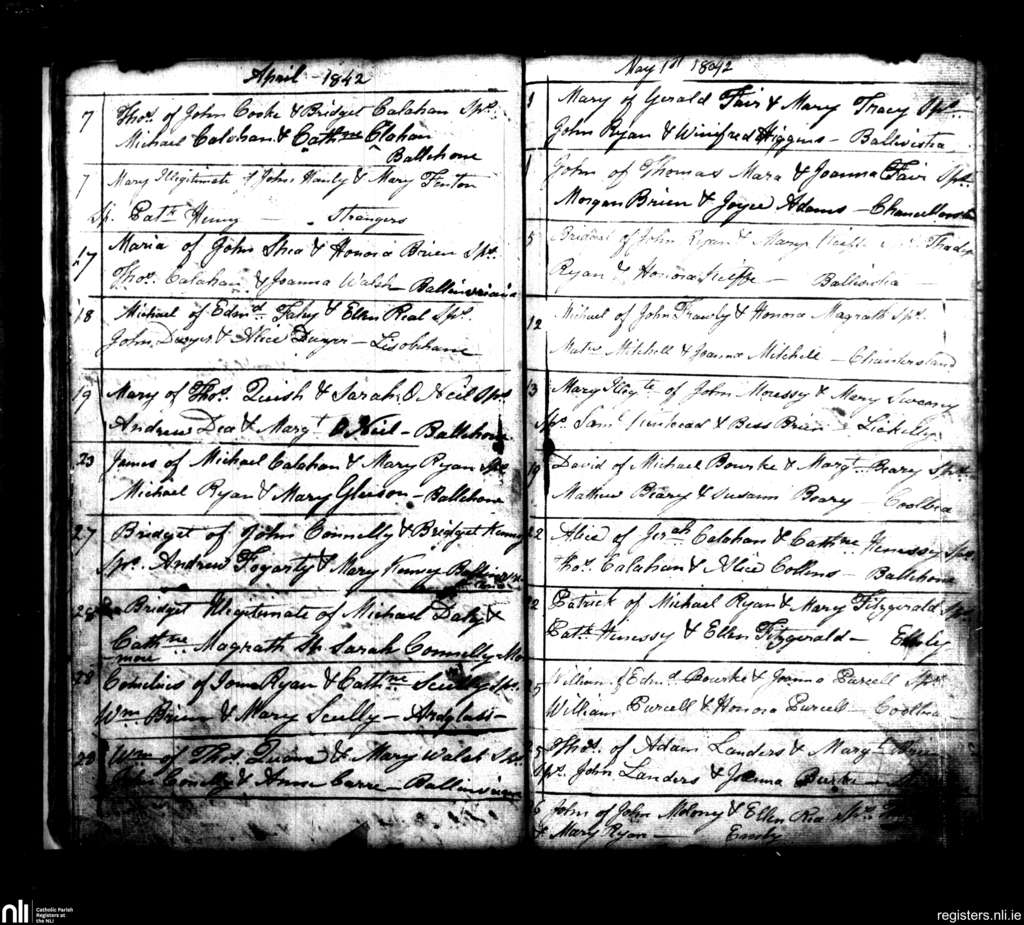 April - 1842
7 Thos. of John Cooke & Bridget Calahan Sps.
Michael Calahan & Cathne Clahan
Ballehone
7 Mary Illigitimate of John Hanly & Mary Fenton
Sp. Patk Henry — Strangers
17 Maria of John Shea & Honora Brien Sps.
Thos. Calahan & Joanna Walsh — 
18 Michael of Edmd. Fahy & Ellen Real Sps.
John Dwyer & Alice Dwyer — Lisobehane
19 Mary of Thos. Quish & Sarah O Neil Sps.
Andrew Dea & Margt O Neil — Ballehone
23 James of Michael Calahan & Mary Ryan Sps.
Michael Ryan & Mary Gleeson — Ballehone
27 Bridget of John Connelly & Bridget
Sps. Andrew Fogarty & Mary
28 Bridget Illigitimate of Michael Daly &
Cathne Magrath Sp. Sarah Connelly
28 Cornelius of Ryan & Cathne Scully Sps.
Wm Brien & Mary Scully — Ardglass —
Wm of Thos. & Mary Walsh Sps.
& Anne
May 1st 1842
1 Mary of Gerald Fair & Mary Tracy Sps.
John Ryan & Winifred Higgins — Ballivistea
1 John of Thomas Mara & Joanna Fair Sps.
Morgan Brien & Joyce Adams —
5 Bridget of John Ryan & Mary
Ryan & Honora — Ballivistea
12 Michael of John Frawly & Honora Magrath Sps.
Mitchell & Joanna Mitchell —
13 Mary of John & Mary Sweeny
Sps. Saml & Bess Brien —
19 David of Michael Bourke & Margt. Beary Sps.
Mathew Beary & Susann Beary — Coolbea
22 Alice of Jerah Calahan & Cathne Henessy Sps.
Thos. Calahan & Alice Collins — Ballehone
Patrick of Michael Ryan & Mary Fitzgerald Sps.
Patk Henessy & Ellen Fitzgerald —
25 William of Edmd Bourke & Joanna Purcell Sps.
William Purcell & Honora Purcell —
Thos. of Adam Landers & Mary
Sps. John Landers & Joanna Burke —
John of John Molony & Ellen Rea Sps.
& Mary Ryan —
nli Catholic Parish
Registers at
the NLI
registers.nli.ie